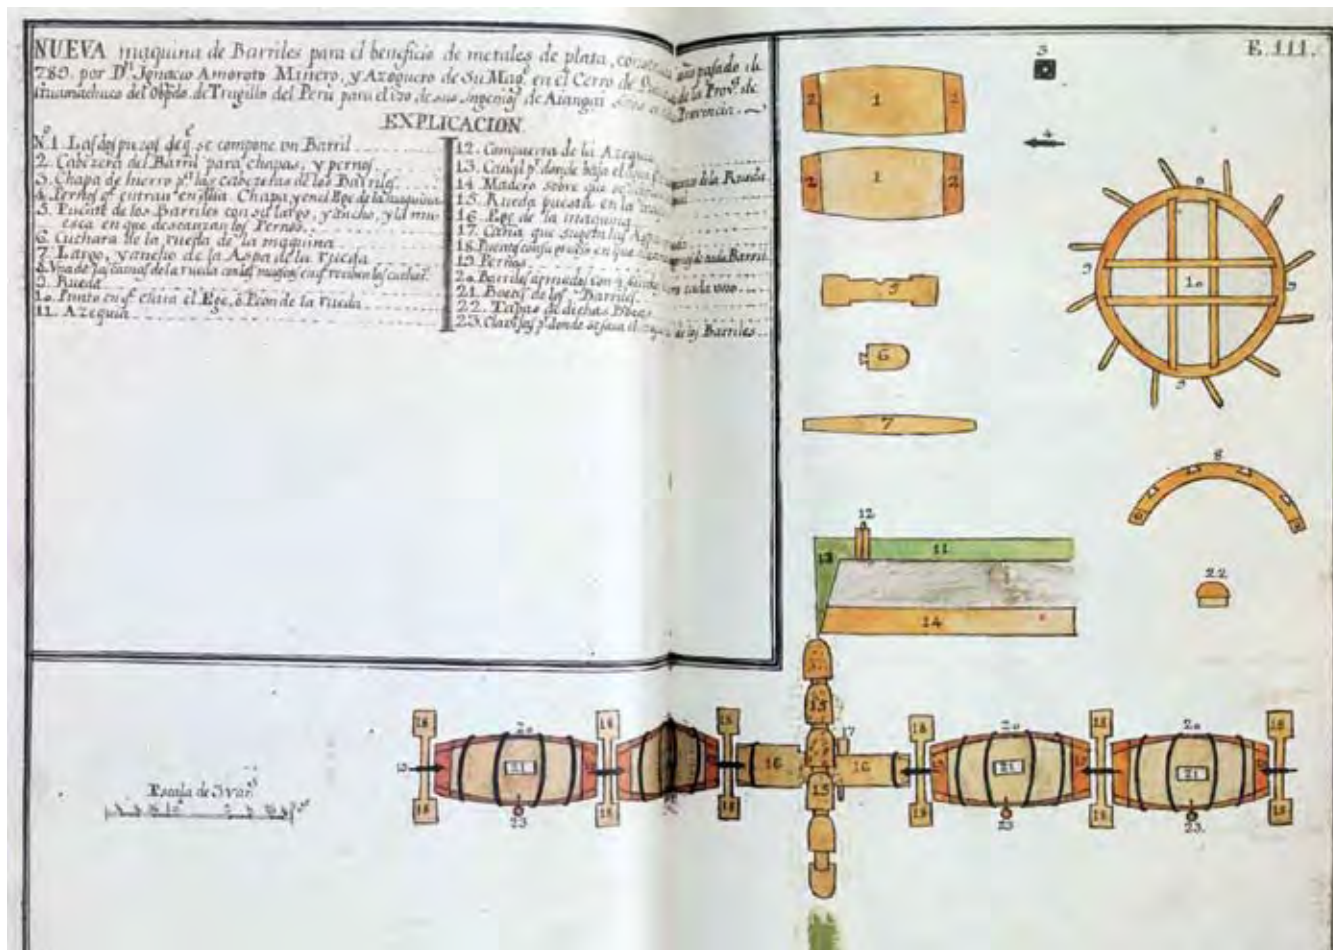 NUEVA maquina de Barriles para el beneficio de metales de plata, año pasado de
789. por Dn. Ignacio Amoroto Minero, y Azoguero de Su Magd. en el Cerro de de la Prova. de
Guamachuco del Obpdo. de Trugillo del Peru para el uso de sus Ingenios de Provincia.
E. 111.
EXPLICACION
No. 1. Las dos piezas de q. se compone un Barril
2. Cabezera del Barril para chapas, y pernos
3. Chapa de hierro pa. las cabezeras de los Barriles
4. Pernos qe. entran en dha Chapa, y en el Ege de la maquina
5. Puente de los Barriles con su largo, y ancho, y la mu
esca en que descanzan los Pernos
6. Cuchara de la rueda de la maquina
7. Largo, y ancho de la Aspa de la rueda
8. Una de las camas de la rueda con las en qe. reciben las cuchars.
9. Rueda
10. Punto en qe. estara el Ege, ô Peon de la rueda
11. Azequia
12. Compuerta de la Azequia
13. Canal pr. donde baja el agua de la Rueda
14. Madero sobre que se
15. Rueda puesta en la
16. Ege de la maquina
17. Caña que sugeta las Aspas
18. Puente con su grueso en que de cada Barril
19. Pernos
20. Barriles armados con cada uno
21. Bocas de los Barriles
22. Tapas de dichas Bocas
23. Clavijas pr. donde se saca el de los Barriles
3
2 1 2
4
2 1 2
9
9 10 9
5
6
9
7
8
12
11
13
22
14
15
18 18 18 15 17 18 18 18
20 20 20
19 21 16 16 21 21
15
18 18 18 18 18 18
23 23 23
Escala de 3 vars.